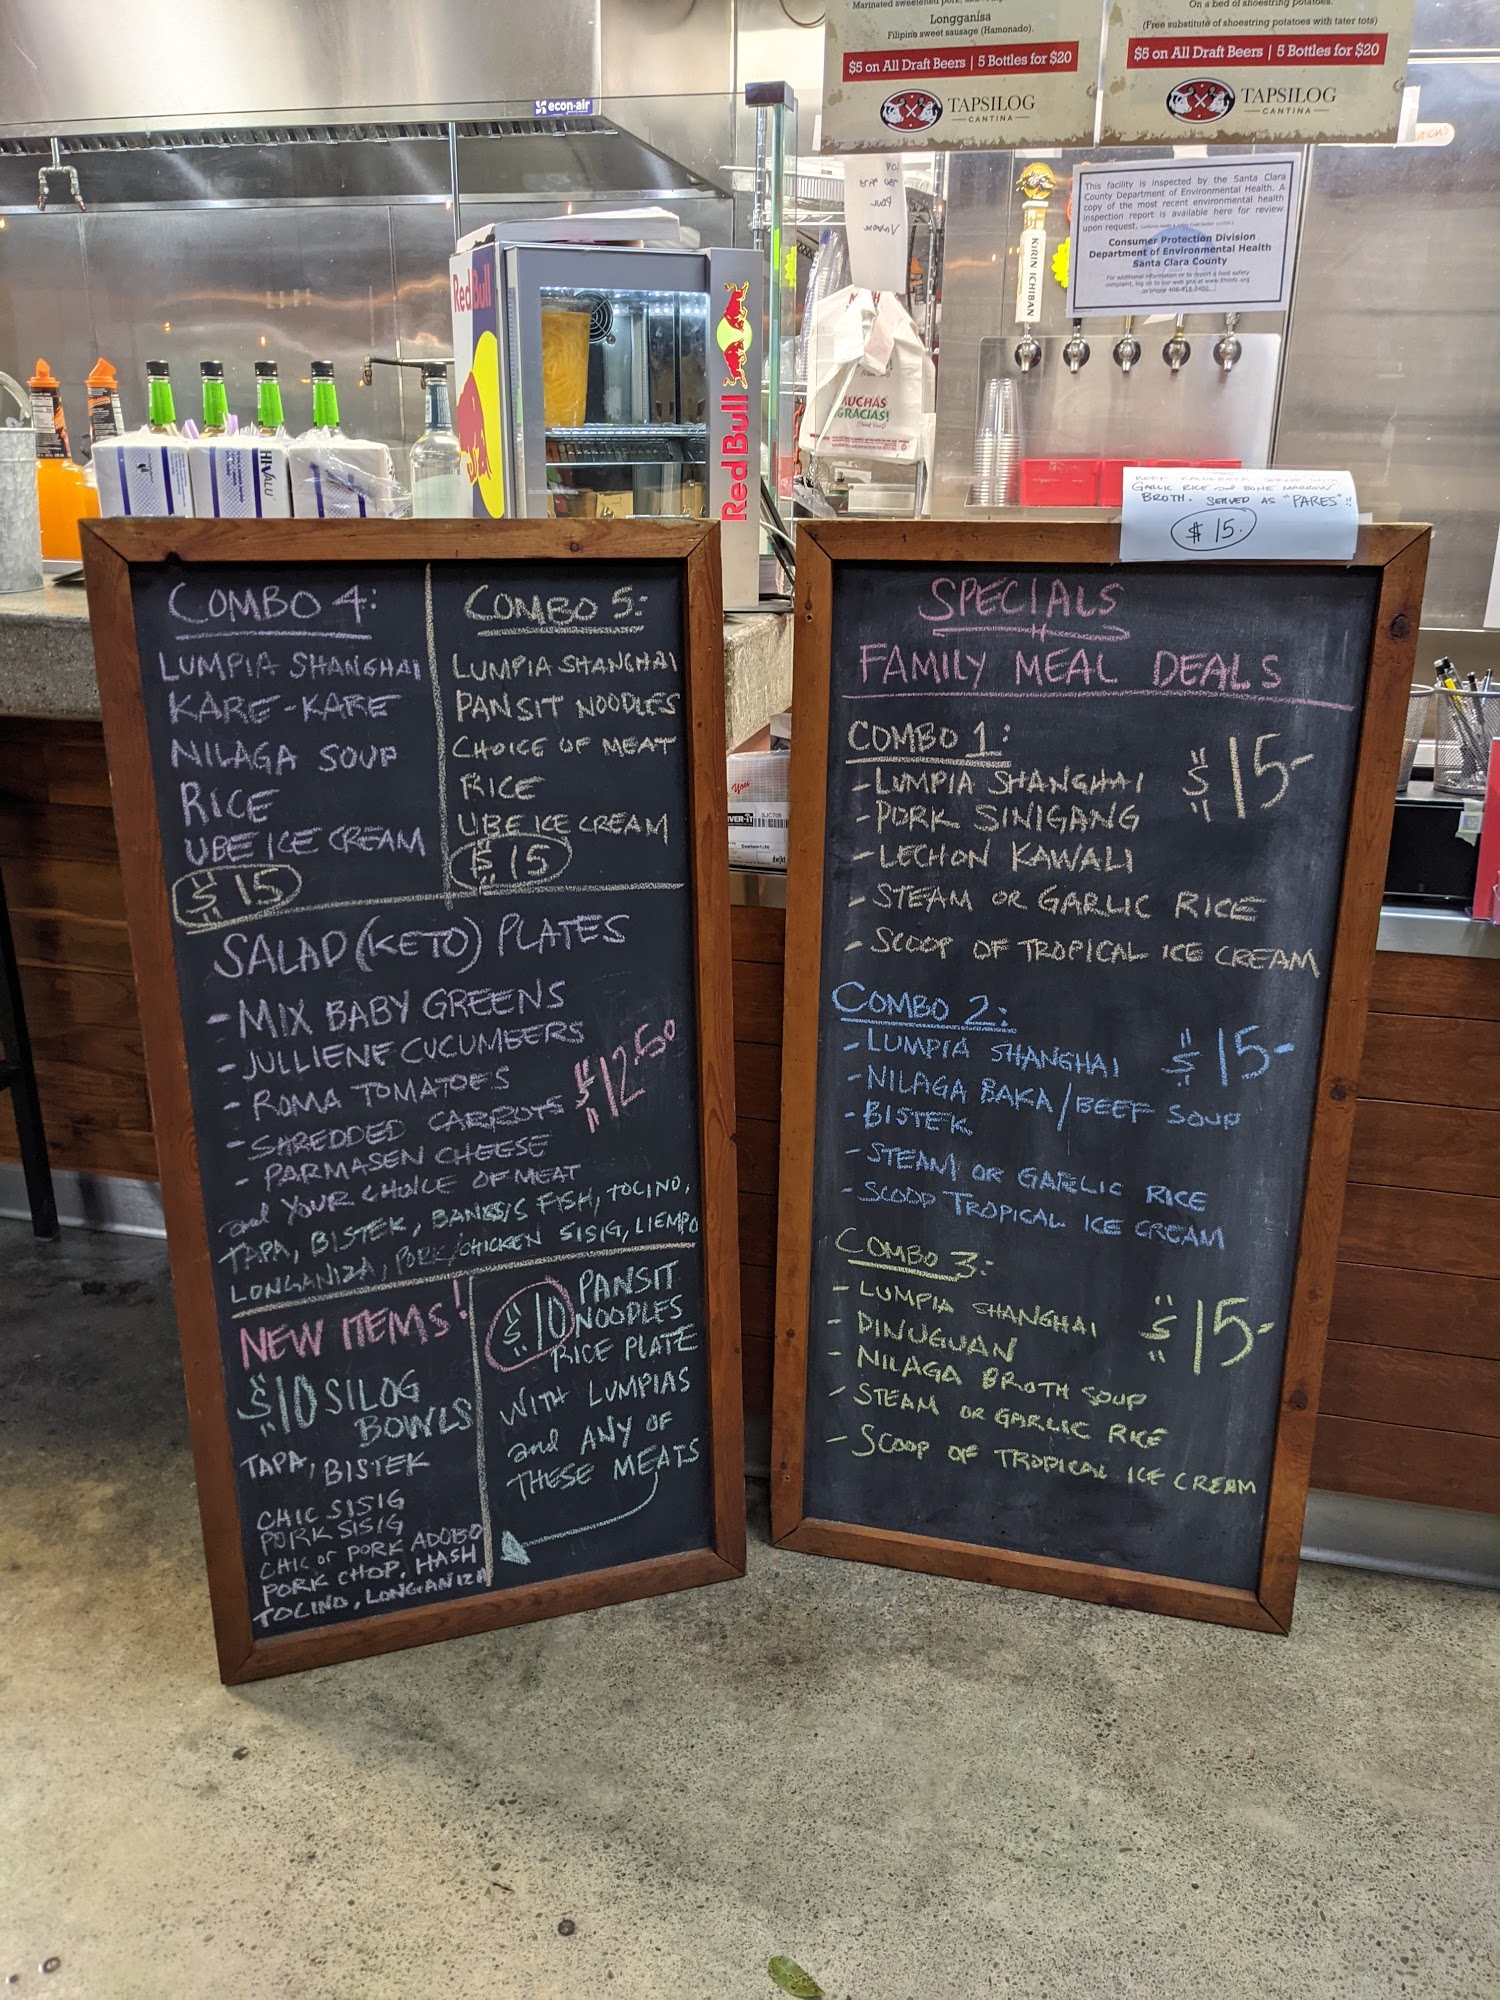 Marinated sweetened pork,
Longganisa
Filipino sweet sausage (Hamonado).
$5 on All Draft Beers | 5 Bottles for $20
TAPSILOG
CANTINA
On a bed of shoestring potatoes.
(Free substitute of shoestring potatoes with tater tots)
$5 on All Draft Beers | 5 Bottles for $20
TAPSILOG
CANTINA
econ-air
This facility is inspected by the Santa Clara
County Department of Environmental Health. A
copy of the most recent environmental health
inspection report is available here for review
upon request.
Consumer Protection Division
Department of Environmental Health
Santa Clara County
For additional information or to report a food safety
complaint, log on to our web site at www.ehinfo.org
KIRIN ICHIBAN
RedBull
RedBull
HIVALU
MUCHAS
GRACIAS!
BEEF KALDERETA SERVED WITH
GARLIC RICE and BONE MARROW
BROTH. SERVED AS "PARES"!!
$15.
COMBO 4:
LUMPIA SHANGHAI
KARE-KARE
NILAGA SOUP
RICE
UBE ICE CREAM
$15
COMBO 5:
LUMPIA SHANGHAI
PANSIT NOODLES
CHOICE OF MEAT
RICE
UBE ICE CREAM
$15
SALAD (KETO) PLATES
- MIX BABY GREENS
- JULLIENE CUCUMBERS
- ROMA TOMATOES
- SHREDDED CARROTS
- PARMASEN CHEESE
$12.50
and YOUR CHOICE OF MEAT
TAPA, BISTEK, BANGUS FISH, TOCINO,
LONGANIZA, PORK/CHICKEN SISIG, LIEMPO
NEW ITEMS!
$10 SILOG
BOWLS
TAPA, BISTEK
CHIC SISIG
PORK SISIG
CHIC or PORK ADOBO
PORK CHOP, HASH
TOCINO, LONGANIZA
$10 PANSIT
NOODLES
RICE PLATE
WITH LUMPIAS
and ANY OF
THESE MEATS
SPECIALS
FAMILY MEAL DEALS
COMBO 1:
$15-
- LUMPIA SHANGHAI
- PORK SINIGANG
- LECHON KAWALI
- STEAM OR GARLIC RICE
- SCOOP OF TROPICAL ICE CREAM
COMBO 2:
$15-
- LUMPIA SHANGHAI
- NILAGA BAKA/BEEF SOUP
- BISTEK
- STEAM OR GARLIC RICE
- SCOOP TROPICAL ICE CREAM
COMBO 3:
$15-
- LUMPIA SHANGHAI
- DINUGUAN
- NILAGA BROTH SOUP
- STEAM OR GARLIC RICE
- SCOOP OF TROPICAL ICE CREAM